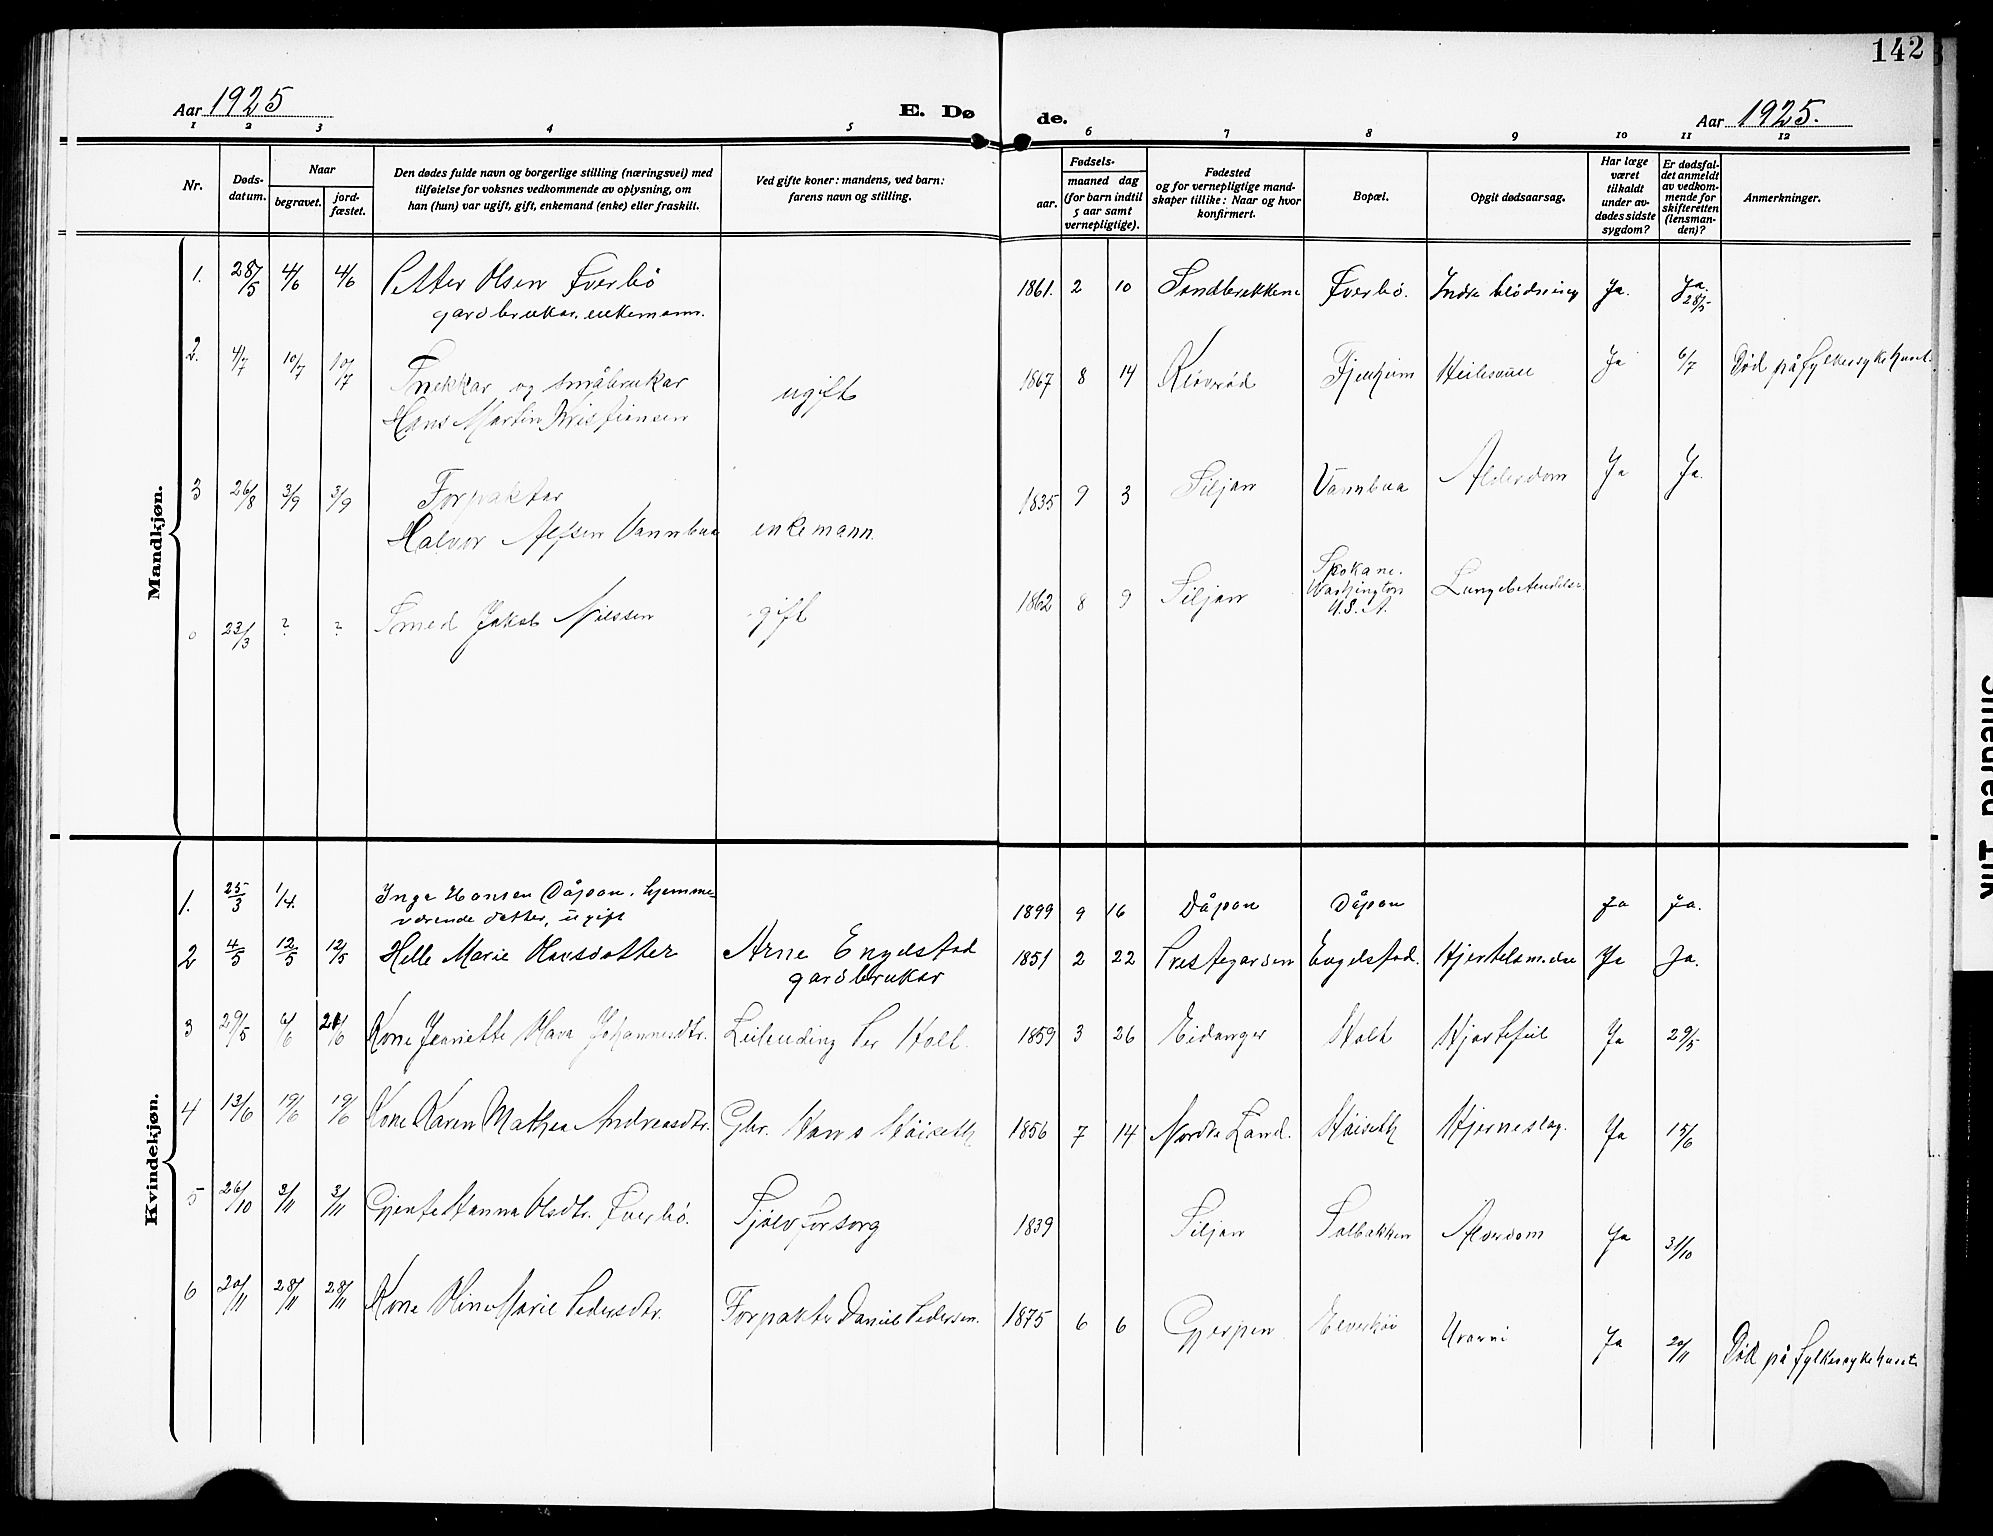 142
Aar 1925
E. Døde.
Aar 1925.
1 2 3 4 5 6 7 8 9 10 11 12
Nr.
Døds-
datum.
Naar
begravet.
jord-
fæstet.
Den dødes fulde navn og borgerlige stilling (næringsvei) med
tilføielse for voksnes vedkommende av oplysning, om
han (hun) var ugift, gift, enkemand (enke) eller fraskilt.
Ved gifte koner: mandens, ved barn:
farens navn og stilling.
Fødsels-
aar.
maaned dag
(for barn indtil
5 aar samt
vernepligtige).
Fødested
og for vernepligtige mand-
skaper tillike: Naar og hvor
konfirmert.
Bopæl.
Opgit dødsaarsag.
Har læge
været
tilkaldt
under av-
dødes sidste
sygdom?
Er dødsfal-
det anmeldt
av vedkom-
mende for
skifteretten
(lensman-
den)?
Anmerkninger.
Mandkjøn.
1. 28/5 4/6 4/6 Petter Olsen Tverbö 1861. 2 10 Sandbrekkene Tverbö. Indre blödning Ja. Ja. 28/5
gardbrukar. enkemann.
2. 4/7 10/7 10/7 Snekkar og småbrukar ugift 1867 8 14 Klöveröd Fjeldheim Ja 6/7 Död på fylkessykehuset.
Hans Martin Kristiansen
3 26/8 3/9 3/9 Forpaktar 1835 9 3 Siljan Vannbua Alderdom Ja Ja.
Halvor Alfsen Vannbua enkemann.
0 23/3 ? ? Smed Jakob Nilssen gift 1862 8 9 Siljan Spokane.
Washington
U.S.A. Lungebetendelse
Kvindekjøn.
1. 25/3 1/4. Inga Hansen Dåpan. hjemme-
værende datter, ugift 1899 9 16 Dåpan Dåpan Ja Ja.
2 4/5 12/5 12/5 Helle Marie Olavsdatter Arne Engelstad
gardbrukar 1851 2 22 Prestegarden Engelstad. Ja Ja.
3 29/5 6/6 21/6 Kone Jeanette Olava Johannesdtr. Leilending Per Holt. 1859 3 26 Eidanger Holt Hjartefeil Ja 29/5
4 13/6 19/6 19/6 Kone Karen Mathea Andreasdtr. Gbr. Hans Höiseth 1856 7 14 Nordre Land. Höiseth Hjerneslag. Ja 15/6
5 26/10 3/11 3/11 Gjente Hanna Olsdtr. Tverbö. Sjölvforsorg 1839 Siljan Solbakken Alderdom Ja 31/10
6 20/11 28/11 28/11 Kone Oline Marie Pedersdtr. Forpakter Daniel Pedersen. 1875 6 6 Gjerpen Uræmi Ja 20/11 Död på fylkessykehuset